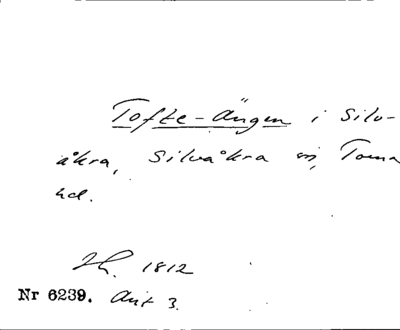 Tofte-Ängen i Silv-
åkra, Silvåkra sn, Torna
hd.
1812
Nr 6239. Akt 3.